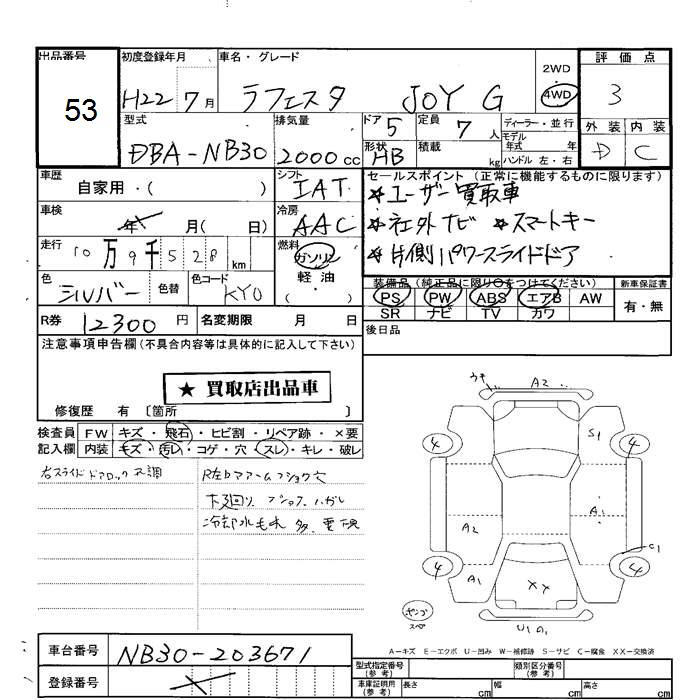 出品番号 53
初度登録年月 H22 7月
車名・グレード ラフェスタ JOY G
2WD
4WD
評価点 3
外装 内装
D C
型式 DBA-NB30
排気量 2000cc
ドア 5
定員 7人
ディーラー・並行
モデル年式 年
ハンドル 左・右
形状 HB
積載 kg
車歴 自家用・( )
シフト IAT
車検 年 月( 日)
冷房 AAC
走行 10万9千528km
燃料 ガソリン
軽油
・
色 シルバー
色替
色コード KY0
R券 12300円
名変期限 月 日
セールスポイント (正常に機能するものに限ります)
★ユーザー買取車
★社外ナビ ★スマートキー
★片側パワースライドドア
装備品 (純正品に限り○をつけてください)
新車保証書
PS PW ABS エアB AW
SR ナビ TV カワ
有・無
後日品
注意事項申告欄(不具合内容等は具体的に記入して下さい)
★ 買取店出品車
修復歴 有 〔箇所 〕
検査員記入欄
FW キズ・飛石・ヒビ割・リペア跡・×要
内装 キズ・汚レ・コゲ・穴・スレ・キレ・破レ
右スライドドアロック不調
下廻り
A2
S1
A1
A2
A1
C1
XX
4
4
4
4
A−キズ E−エクボ U−凹み W−補修跡 S−サビ C−腐食 XX−交換済
車台番号 NB30-203671
登録番号
型式指定番号(参考)
類別区分番号(参考)
車庫証明用(参考)
長さ cm
幅 cm
高さ cm